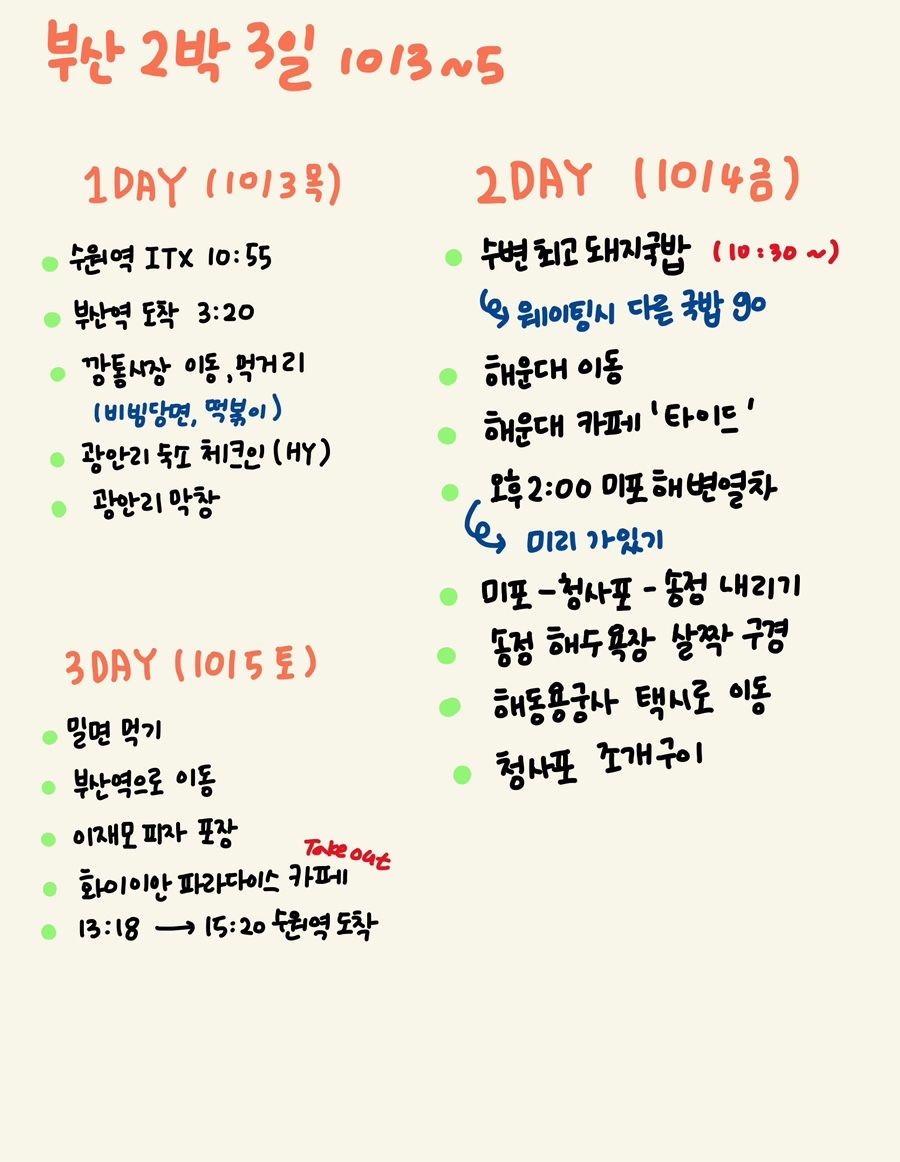 부산 2박 3일 10/3~5
1DAY (10/3목)
수원역 ITX 10:55
부산역 도착 3:20
깡통시장 이동, 먹거리
(비빔당면, 떡볶이)
광안리 숙소 체크인 (HY)
광안리 막창
2DAY (10/4금)
수변최고 돼지국밥 (10:30~)
웨이팅시 다른 국밥 go
해운대 이동
해운대 카페 '타이드'
오후 2:00 미포 해변열차
미리 가있기
미포 - 청사포 - 송정 내리기
송정 해수욕장 살짝 구경
해동용궁사 택시로 이동
청사포 조개구이
3DAY (10/5토)
밀면 먹기
부산역으로 이동
이재모 피자 포장
Take out
화이이안 파라다이스 카페
13:18 → 15:20 수원역 도착